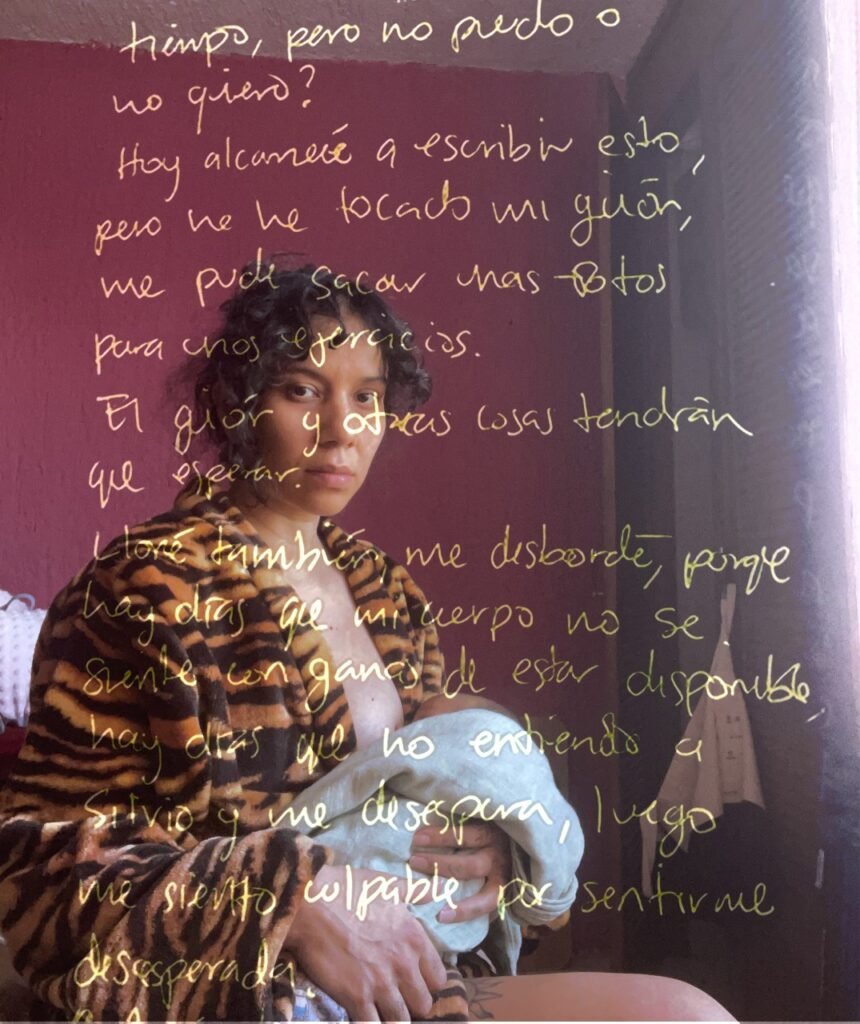 tiempo, pero no puedo o
no quiero?
Hoy alcancé a escribir esto,
pero no he tocado mi guión,
me pude sacar unas fotos
para unos ejercicios.
El guión y otras cosas tendrán
que esperar.
Lloré también, me desbordé, porque
hay días que mi cuerpo no se
siente con ganas de estar disponible,
hay días que no entiendo a
Silvio y me desespera, luego
me siento culpable por sentirme
desesperada.